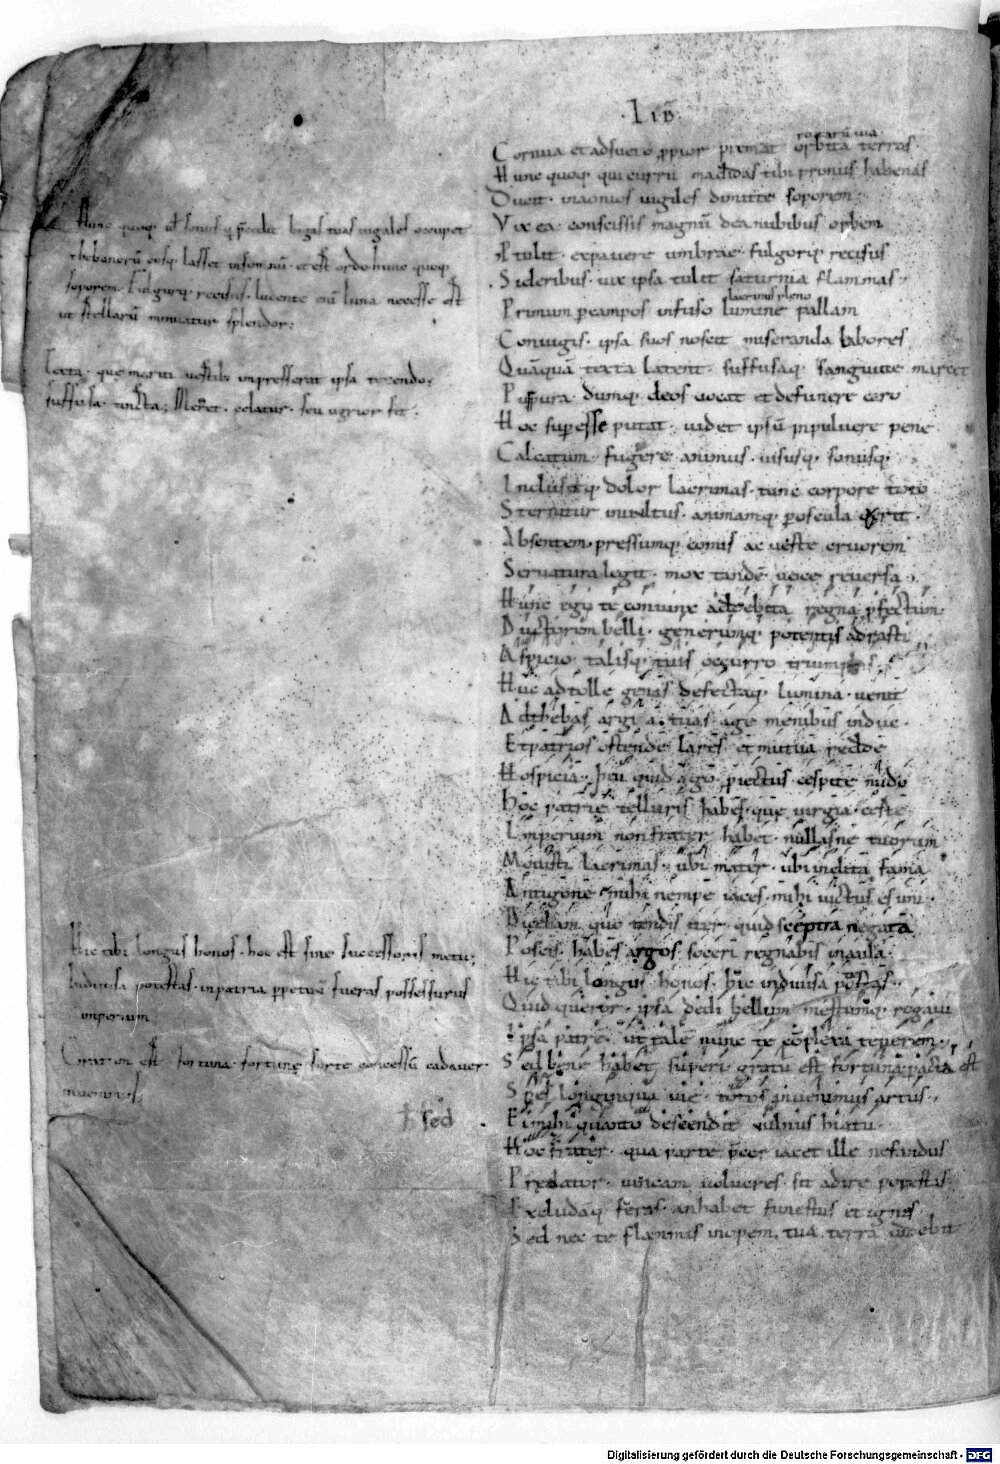 · LIB ·
rotarũ via
Cornua et adsueto ꝓpior premat orbita terras·
Hunc quoq; qui curru madidas tibi pronus habenas
Ducit· inaonios vigiles dimitte soporem·
Vix ea· conscissis magnũ dea nubibus orbem
Ptulit· expavere umbrae· fulgorq; recisus
Sideribus· vix ipsa tulit saturnia flammas·
lacrimis pleno
Primum ꝑcampos infuso lumine pallam
Coniugis· ipsa suos noscit miseranda labores
Quãquã texta latent· suffusaq; sanguine maeret
Purpura· dumq; deos vocat et defuncre caro
Hoc superesse putat· videt ipsũ inpulvere pene
Calcatum· fugere animus· visusq; sonusq;
Inclusitq; dolor lacrimas· tunc corpore toto
Sternitur invultus· animamq; ꝑoscula querit·
Absentem· pressumq; comis ac veste cruorem
Servatura legit· mox tandẽ voce reversa·
Hunc ego te coniunx ad debita regna ꝓfectum
Ductorem belli· generumq; potentis adrasti
Aspicio· talisq; tuis occurro triumphis·
Huc adtolle genas defectaq; lumina· venit
Ad thebas argia tuas· age menibus indue·
Et patrios ostende lares· et mutua redde
Hospicia· heu quid ago· ꝓiectus cespite nudo
Hoc patrie telluris habes· que iurgia· certe
Imperium non frater habet· nullasne tuorum
Movisti lacrimas· ubi mater· ubi inclita fama
Antigone· mihi nempe iaces· mihi victus es uni·
Dicebam quo tendis iter· quid sceptra negata
Poscis· habes argos· soceri regnabis inaula·
Hic tibi longus honos· hic indivisa ptãs·
Quid queror· ipsa dedi bellum mestumq; rogavi
Ipsa patrẽ· ut talẽ nunc te cõplexa tenerem·
Sed bene habet· superi· gratũ est fortuna· pacta est
Spes longinqua vie· totos invenimus artus·
Ei mihi quanto descendit vulnus hiatu·
Hoc frater· qua parte p̃cor iacet ille nefandus
Predator· vincam volucres· sit adire potestas
Excludãq; feras· anhabet funestus et ignes·
Sed nec te flammis inopem tua terra videbit
Hunc quoq; id est bigas tuas vigiles occupet
thebanorũ eosq; lasset insomniũ· et est ordo hunc quoq;
soporem· Fulgurq; recisus· lucente eni luna necesse est
ut stellarũ minuatur splendor:
Texta· que mariti vestib; impresserat ipsa texendo;
suffusa· tincta; Meret· celatur· seu nigrior fit·
Hic tibi longus honos· hoc est sine successoris metu;
Indivisa potestas· inpatria ꝑpetuũ fueras possessurus
imperium
Gratum est fortuna· fortune forte concessũ cadaver
invenimus;
sed
Digitalisierung gefördert durch die Deutsche Forschungsgemeinschaft - DFG